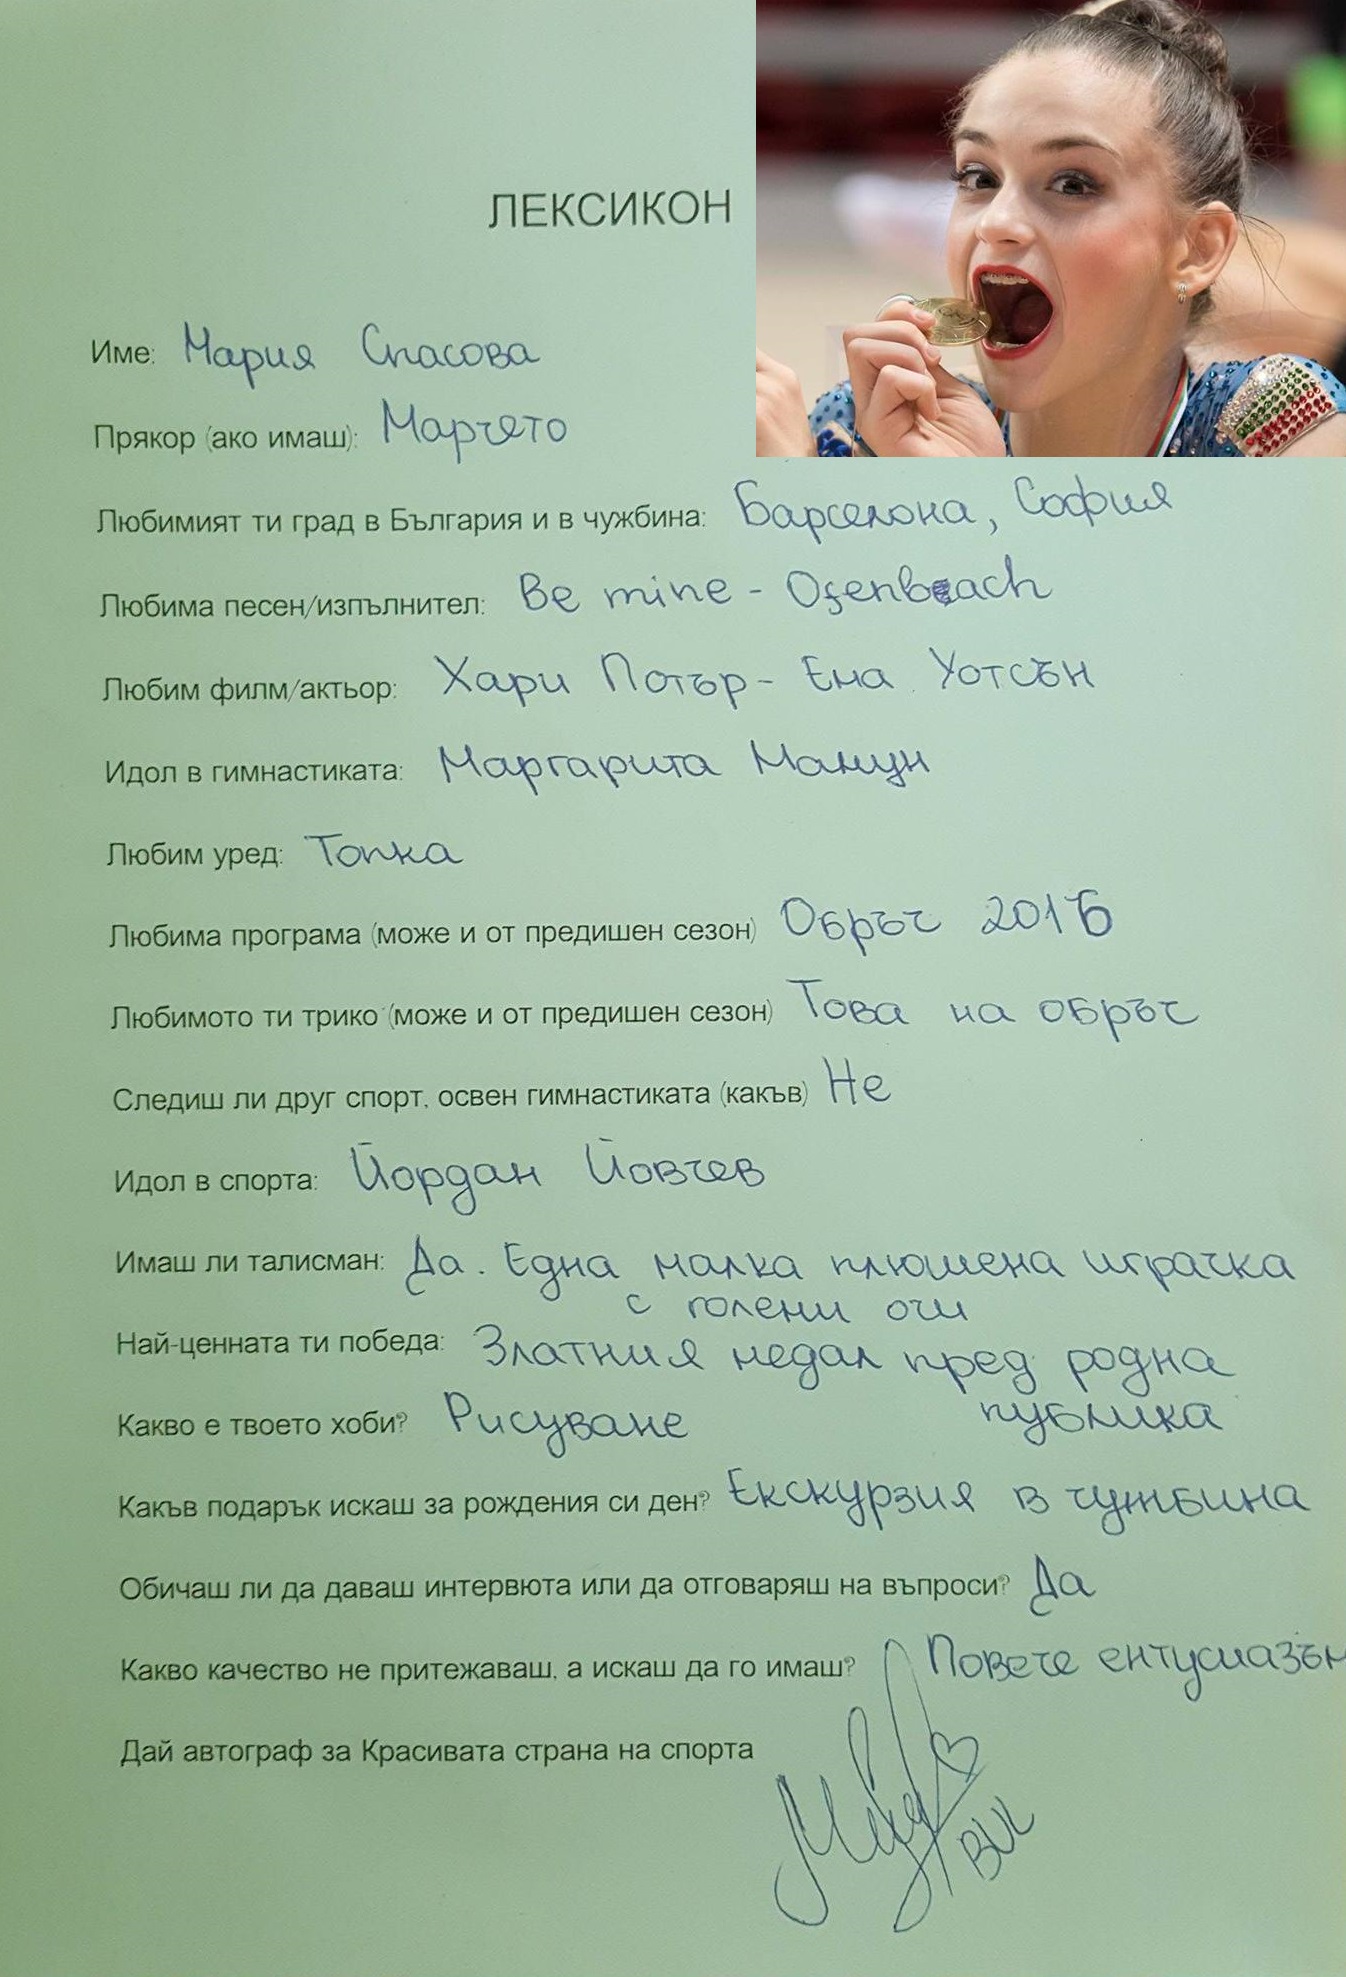 ЛЕКСИКОН
Име: Мария Спасова
Прякор (ако имаш): Марчето
Любимият ти град в България и в чужбина: Барселона, София
Любима песен/изпълнител: Be mine - Ofenbach
Любим филм/актьор: Хари Потър - Ема Уотсън
Идол в гимнастиката: Маргарита Мамун
Любим уред: Топка
Любима програма (може и от предишен сезон) Обръч 2016
Любимото ти трико (може и от предишен сезон) Това на обръч
Следиш ли друг спорт, освен гимнастиката (какъв) Не
Идол в спорта: Йордан Йовчев
Имаш ли талисман: Да. Една малка плюшена играчка
с големи очи
Най-ценната ти победа: Златния медал пред родна
публика
Какво е твоето хоби? Рисуване
Какъв подарък искаш за рождения си ден? Екскурзия в чужбина
Обичаш ли да даваш интервюта или да отговаряш на въпроси? Да
Какво качество не притежаваш, а искаш да го имаш? Повече ентусиазъм
Дай автограф за Красивата страна на спорта
BUL